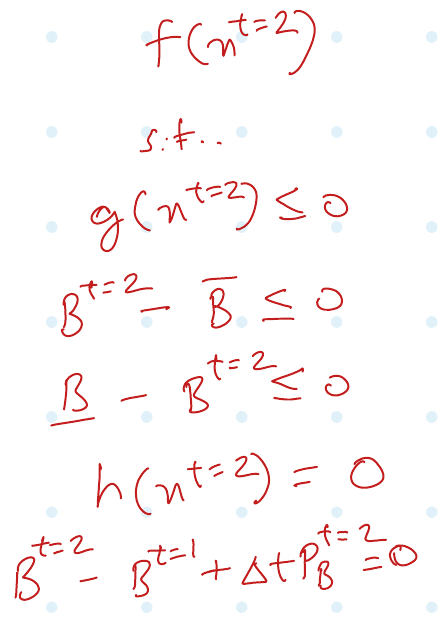 f(x^{t=2})
s.t..
g(x^{t=2}) ≤ 0
B^{t=2} - \overline{B} ≤ 0
\underline{B} - B^{t=2} ≤ 0
h(x^{t=2}) = 0
B^{t=2} - B^{t=1} + Δt P_B^{t=2} = 0